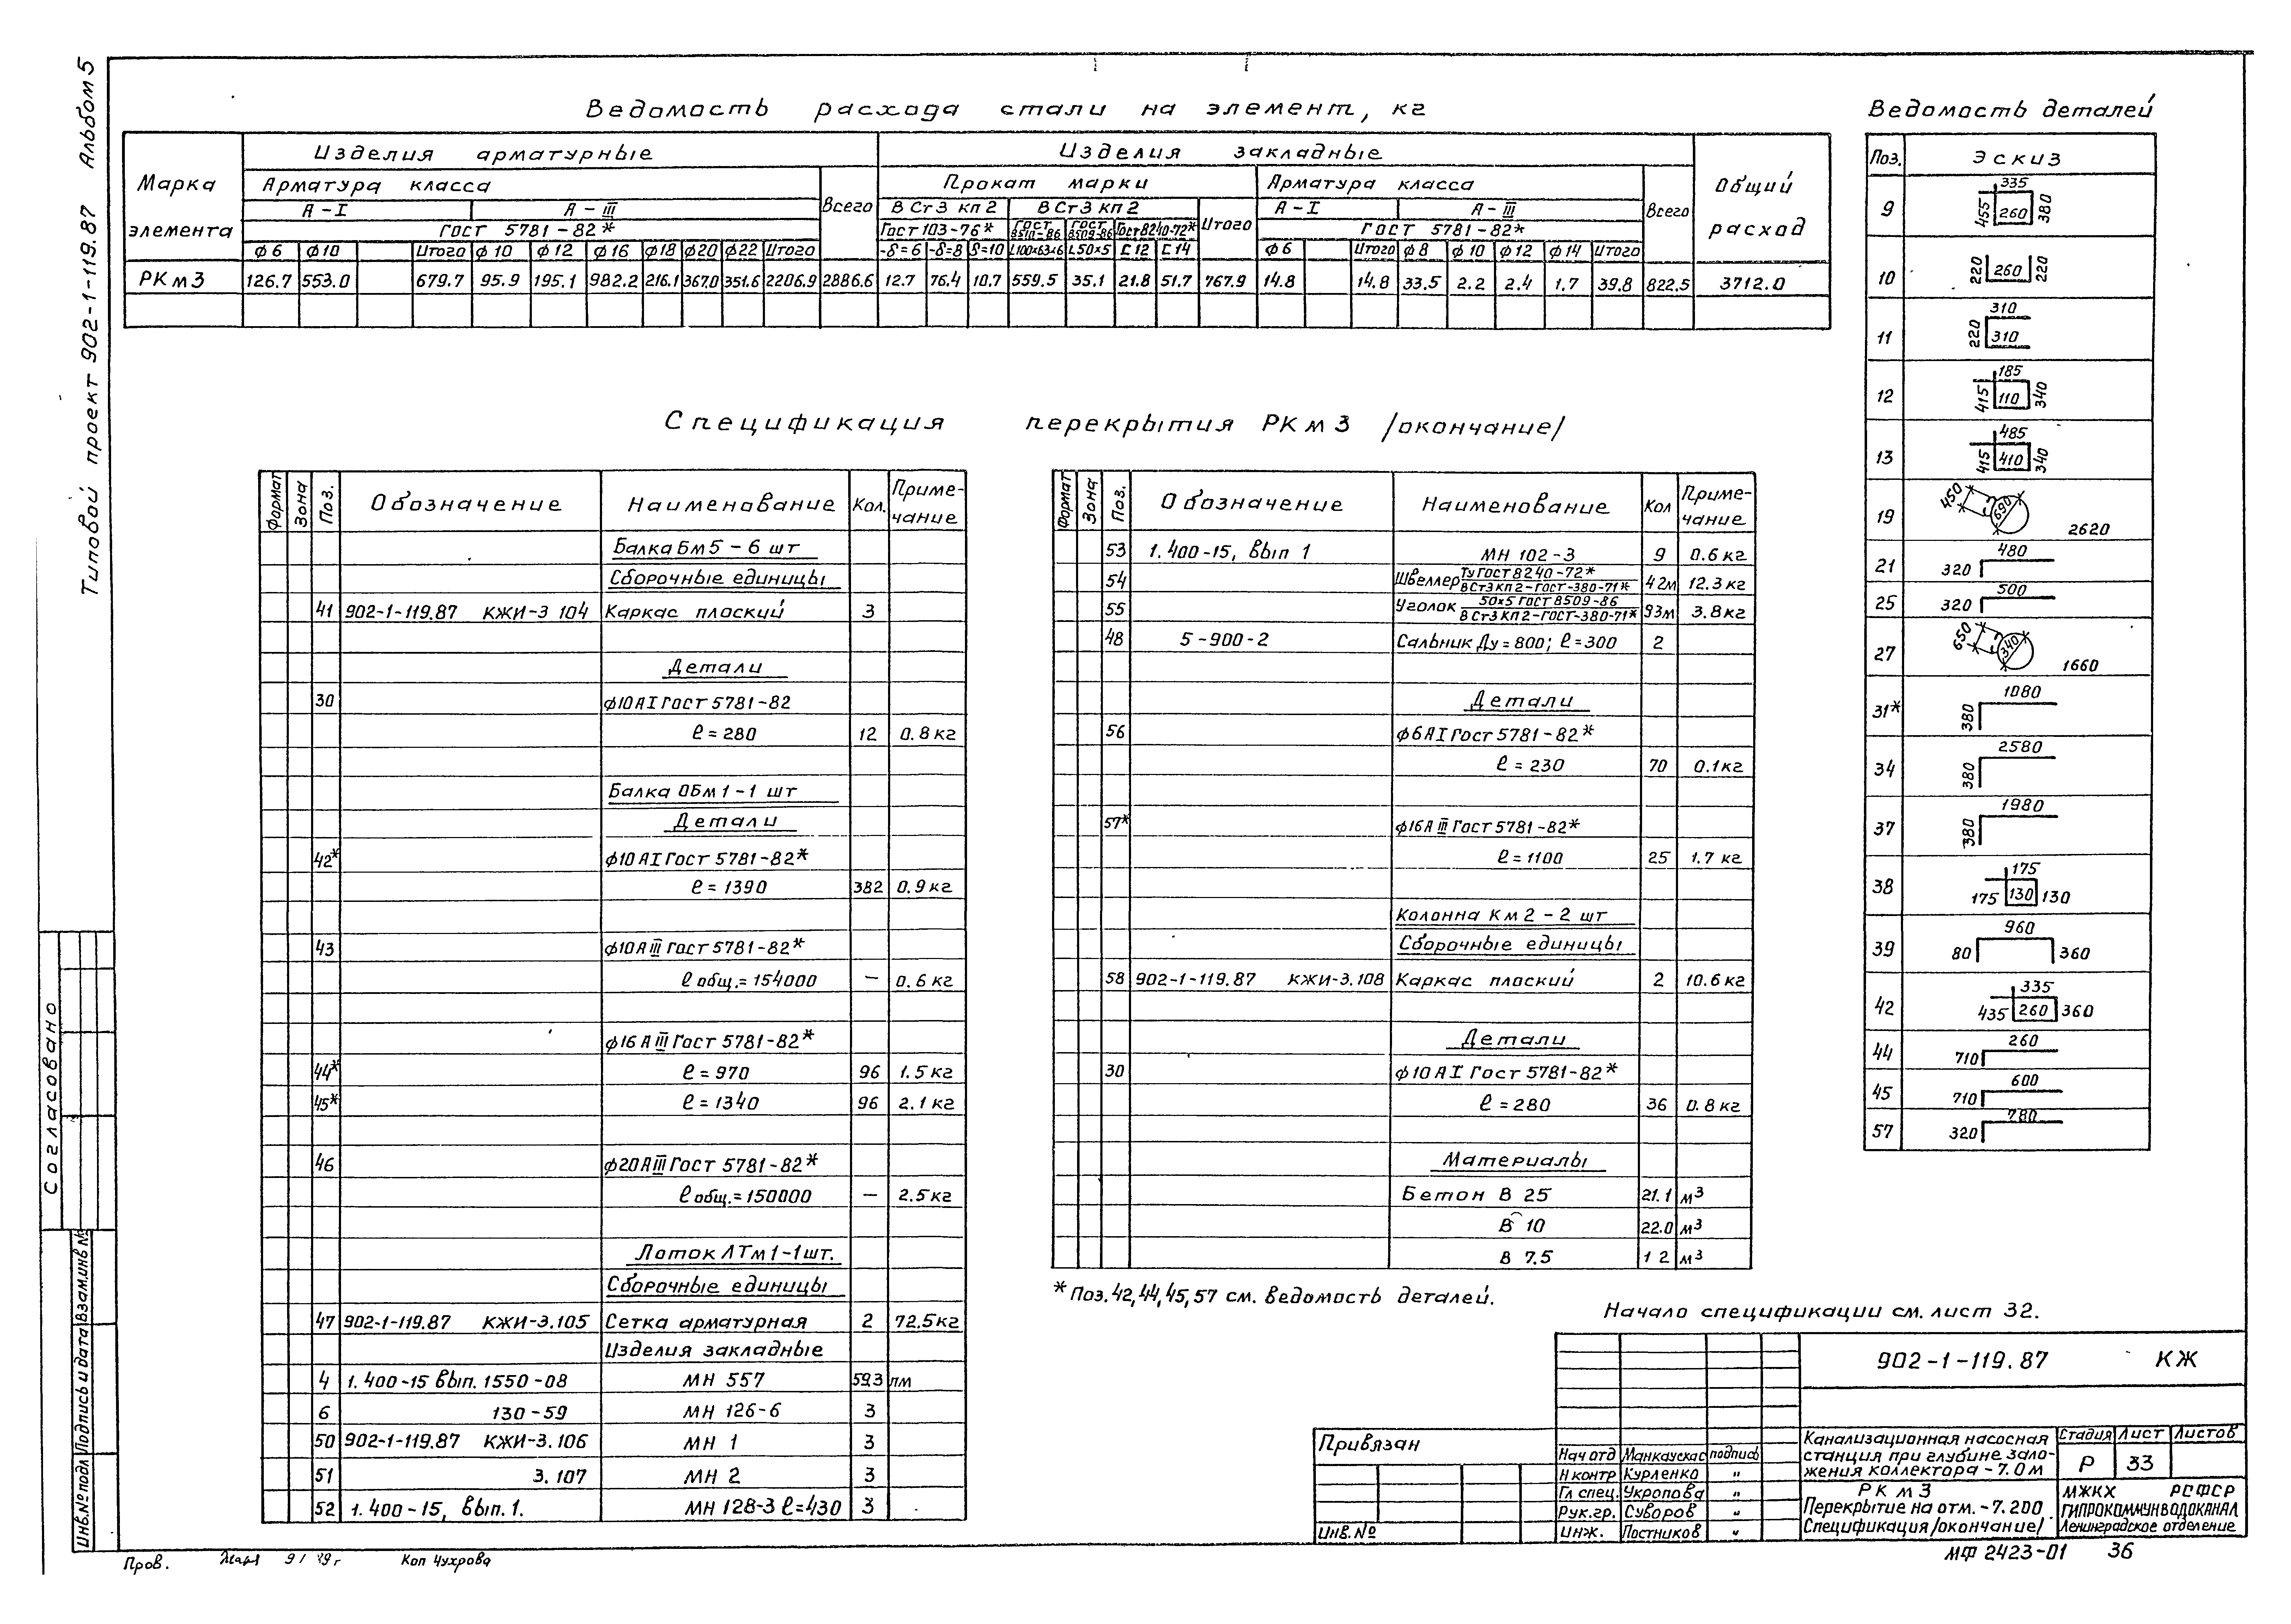 Типовой проект 902-1-119.87 Альбом 5
Ведомость расхода стали на элемент, кг
Марка элемента
Изделия арматурные
Изделия закладные
Общий расход
Арматура класса
Всего
Прокат марки
Арматура класса
Всего
А-I
А-III
ВСт3 кп2
ВСт3 кп2
Итого
А-I
А-III
Гост 5781-82*
Гост 103-76*
Гост 8510-86
Гост 8509-86
Гост 8240-72*
Гост 5781-82*
ф6 ф10 Итого ф10 ф12 ф16 ф18 ф20 ф22 Итого
-δ=6 -δ=8 δ=10 L100×63×6 L50×5 [12 [14
ф6 Итого ф8 ф10 ф12 ф14 Итого
РКм3 126.7 553.0 679.7 95.9 195.1 982.2 216.1 367.0 351.6 2206.9 2886.6 12.7 76.4 10.7 559.5 35.1 21.8 51.7 767.9 14.8 14.8 33.5 2.2 2.4 1.7 39.8 822.5 3712.0
Спецификация перекрытия РКм3 /окончание/
Формат Зона Поз. Обозначение Наименование Кол. Приме-чание
Балка Бм5 - 6 шт
Сборочные единицы
41 902-1-119.87 КЖИ-3 104 Каркас плоский 3
Детали
30 ф10АI Гост 5781-82
ℓ = 280 12 0.8 кг
Балка ОБм1-1 шт
Детали
42* ф10 АI Гост 5781-82*
ℓ = 1390 382 0.9 кг
43 ф10А III Гост 5781-82*
ℓ общ. = 154000 — 0.6 кг
ф16 А III Гост 5781-82*
44* ℓ = 970 96 1.5 кг
45* ℓ = 1340 96 2.1 кг
46 ф20АIII Гост 5781-82*
ℓ общ. = 150000 — 2.5 кг
Лоток ЛТм1-1шт.
Сборочные единицы
47 902-1-119.87 КЖИ-3.105 Сетка арматурная 2 72.5кг
Изделия закладные
4 1.400-15 Вып. 1550-08 МН 557 59.3 пм
6 130-59 МН 126-6 3
50 902-1-119.87 КЖИ-3.106 МН 1 3
51 3.107 МН 2 3
52 1.400-15, вып.1. МН 128-3 ℓ=430 3
Формат Зона Поз. Обозначение Наименование Кол Приме-чание
53 1.400-15, вып 1 МН 102-3 9 0.6 кг
54 Швеллер ТУ Гост 8240-72* / ВСт3 КП2-ГОСТ-380-71* 42м 12.3 кг
55 Уголок 50×5 ГОСТ 8509-86 / ВСт3 КП2-ГОСТ-380-71* 93м 3.8кг
48 5-900-2 Сальник Ду=800; ℓ=300 2
Детали
56 ф6АI Гост 5781-82*
ℓ = 230 70 0.1кг
57* ф16А III Гост 5781-82*
ℓ = 1100 25 1.7 кг
Колонна Км2 - 2 шт
Сборочные единицы
58 902-1-119.87 КЖИ-3.108 Каркас плоский 2 10.6 кг
Детали
30 ф10 АI Гост 5781-82*
ℓ = 280 36 0.8 кг
Материалы
Бетон В 25 21.1 м³
В 10 22.0 м³
В 7.5 1 2 м³
* Поз. 42,44,45,57 см. ведомость деталей.
Начало спецификации см. лист 32.
Ведомость деталей
Поз. Эскиз
9 335 455 260 380
10 220 260 220
11 310 220 310
12 185 415 110 340
13 485 415 410 340
19 450 690 2620
21 480 320
25 500 320
27 650 340 1660
31* 1080 380
34 2580 380
37 1980 380
38 175 175 130 130
39 960 80 360
42 335 435 260 360
44 260 710
45 600 710
57 780 320
902-1-119.87 КЖ
Привязан
Инв.№
Нач отд Манкаускас подпись
Н контр Курленко "
Гл спец. Укропова "
Рук.гр. Суворов "
Инж. Постников "
Канализационная насосная станция при глубине зало-жения коллектора -7.0м
Стадия Лист Листов
Р 33
РКм3
Перекрытие на отм. -7.200.
Спецификация/окончание/
МЖКХ РСФСР
ГИПРОКОММУНВОДОКАНАЛ
Ленинградское отделение
МФ 2423-01 36
Согласовано
Инв.№подл Подпись и дата Взам.инв №
Пров.
Коп Чухрова